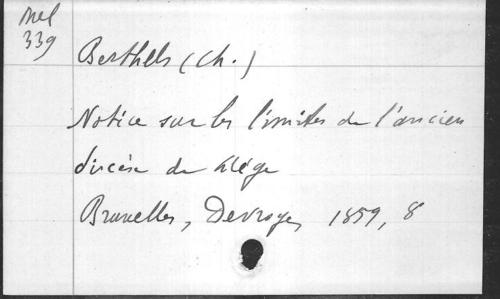 Mel
339
Berthels (Ch.)
Notice sur les limites de l'ancien
diocèse de Liége
Bruxelles, Devroye, 1859, 8